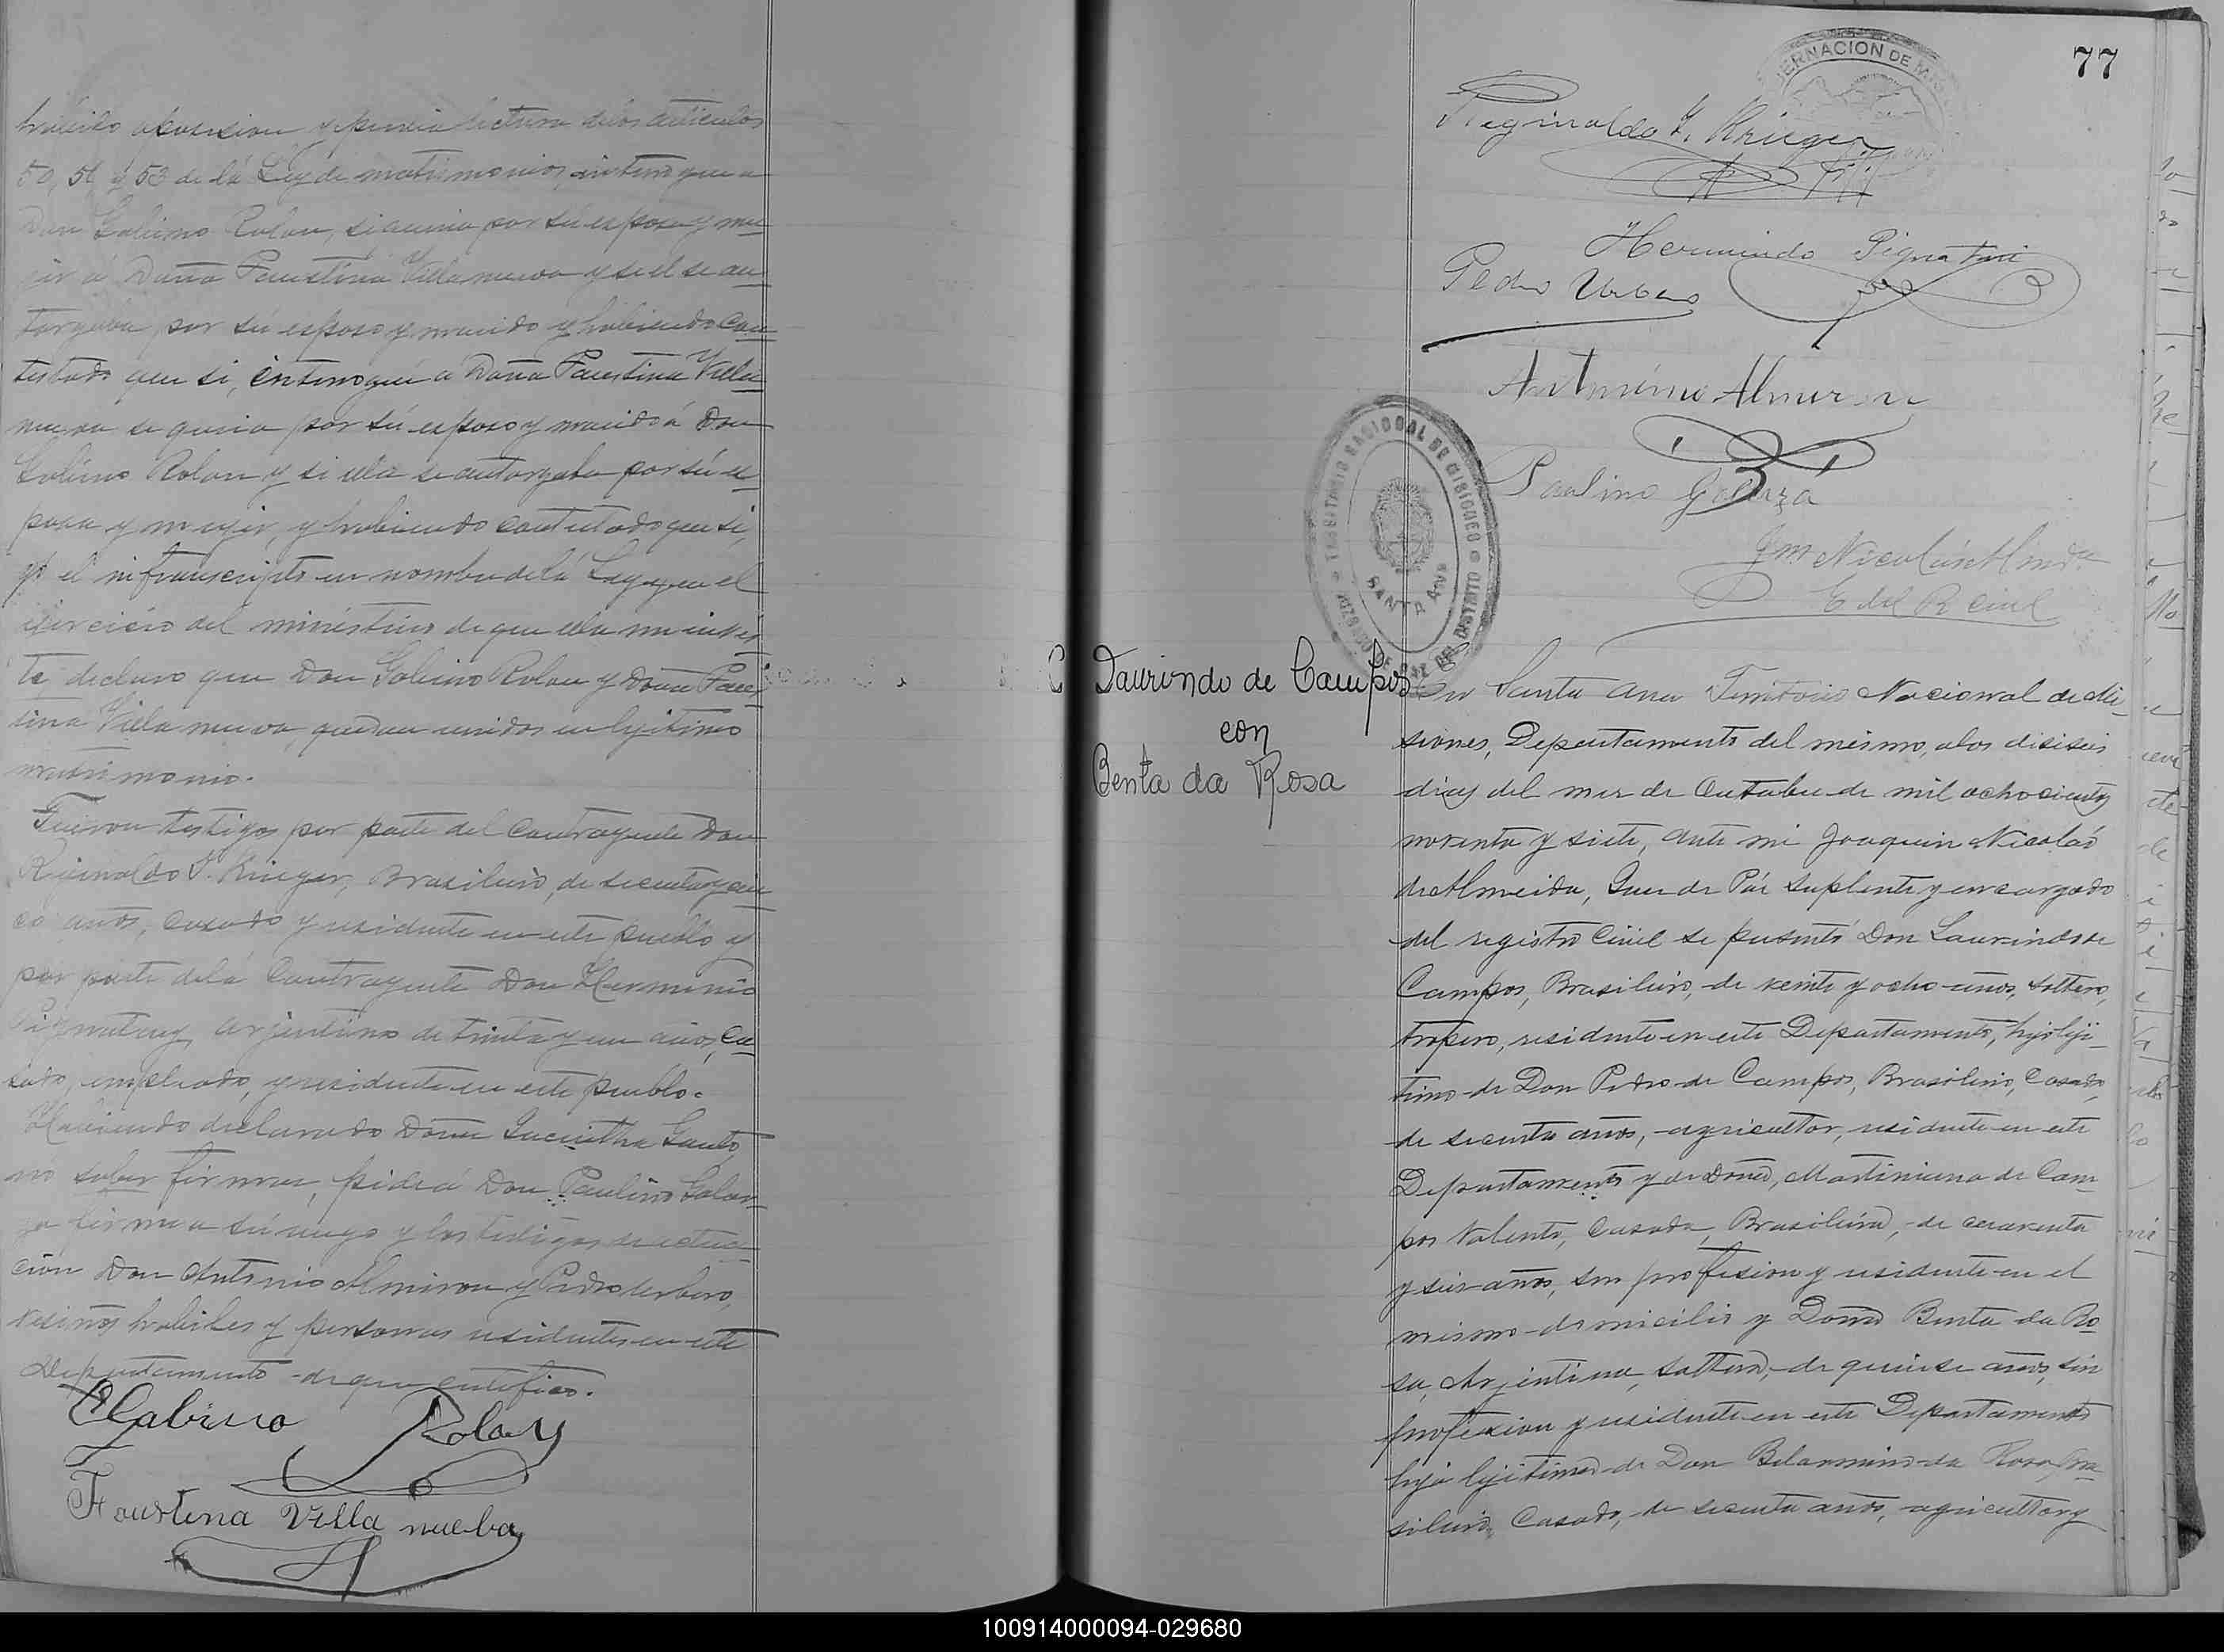 hubiese oposision y previa lectura delos articulos
50, 51 y 53 de lá Ley de matrimonios, interrogue a
Don Gabino Rolon, si queria por su esposa y mu
jer á Doña Faustina Villanueva y si el se au
torgaba por sú esposo y marido y habiendo con
testado que si, interrogué a Doña Faustina Villa
nueva se queria por sú esposo y marido á Don
Gabino Rolon y si ella se autorgaba por sú es
posa y mujer, y habiendo contestado que si,
yo el infranscripto en nombre delá Ley y en el
ejercicio del ministerio de que ella me invis
te declaro que Don Gabino Rolon y Doña Faus
tina Villanueva, quedan unidos en lejitimo
matrimonio.
Fueron testigos por parte del contrayente Don
Reginaldo J. Krieger, Brasilero, de secenta y cin
co años, casado y residente en este pueblo y
por parte delá Contrayente Don Herminio
argentino de trinta y un años, ca
sado, empleado, y residente en este pueblo.
Habiendo declarado Doña Jacintha
nó saber firmar, pide á Don Paulino Galar
za firme a sú ruego y los testigos de actua
ción Don Antonio Almiron y Pedro Urbano,
vesinos habiles y personas residentes en este
Departamento de que certifico.
Gabino Rolon
Faustina Villa nueba
77
GOBERNACION DE MISIONES
Reginaldo J. Krieger
Herminido Pignatari
Pedro Urbano
Antonino Almiron
Paulino Galarza
Jm Nicolás Almda
E del R Civil
TERRITORIO NACIONAL DE MISIONES
SANTA ANA
JUZGADO DE PAZ DEL DISTRITO
Laurindo de Campos
con
Benta da Rosa
En Santa Ana Territorio Nacional de Mi
siones, Departamento del mismo, alos disiseis
dias del mes de Octubre de mil ochocientos
noventa y siete, ante mi Joaquin Nicolás
de Almeida, Jues de Páz Suplente y encargado
del registro Civil se presentó Don Laurindo de
Campos, Brasilero, de veinte y ocho años, soltero,
tropero, residente en este Departamento, hijo leji
timo de Don Pedro de Campos, Brasilero, Casado,
de secenta años, agricultor, residente en este
Departamento y de Doña, Martiniana de Cam
pos Valente, Casada, Brasilera, de cuarenta
y seis años, sin profesion y residente en el
mismo domicilio y Doña Benta da Ro
sa, Argentina, soltera, de quinse años, sin
profesion y residente en este Departamento
hija lejitima de Don Belarmino da Rosa, Bra
silero, Casado, de secenta años, agricultor y
100914000094-029680